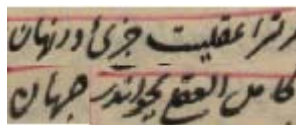 مر ترا عقلیست جزوی در نهان
کامل العقلی بجو اندر جهان